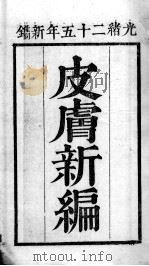 光緒二十五年新鐫
皮膚新編
mtoou.info
www.mtoou.info